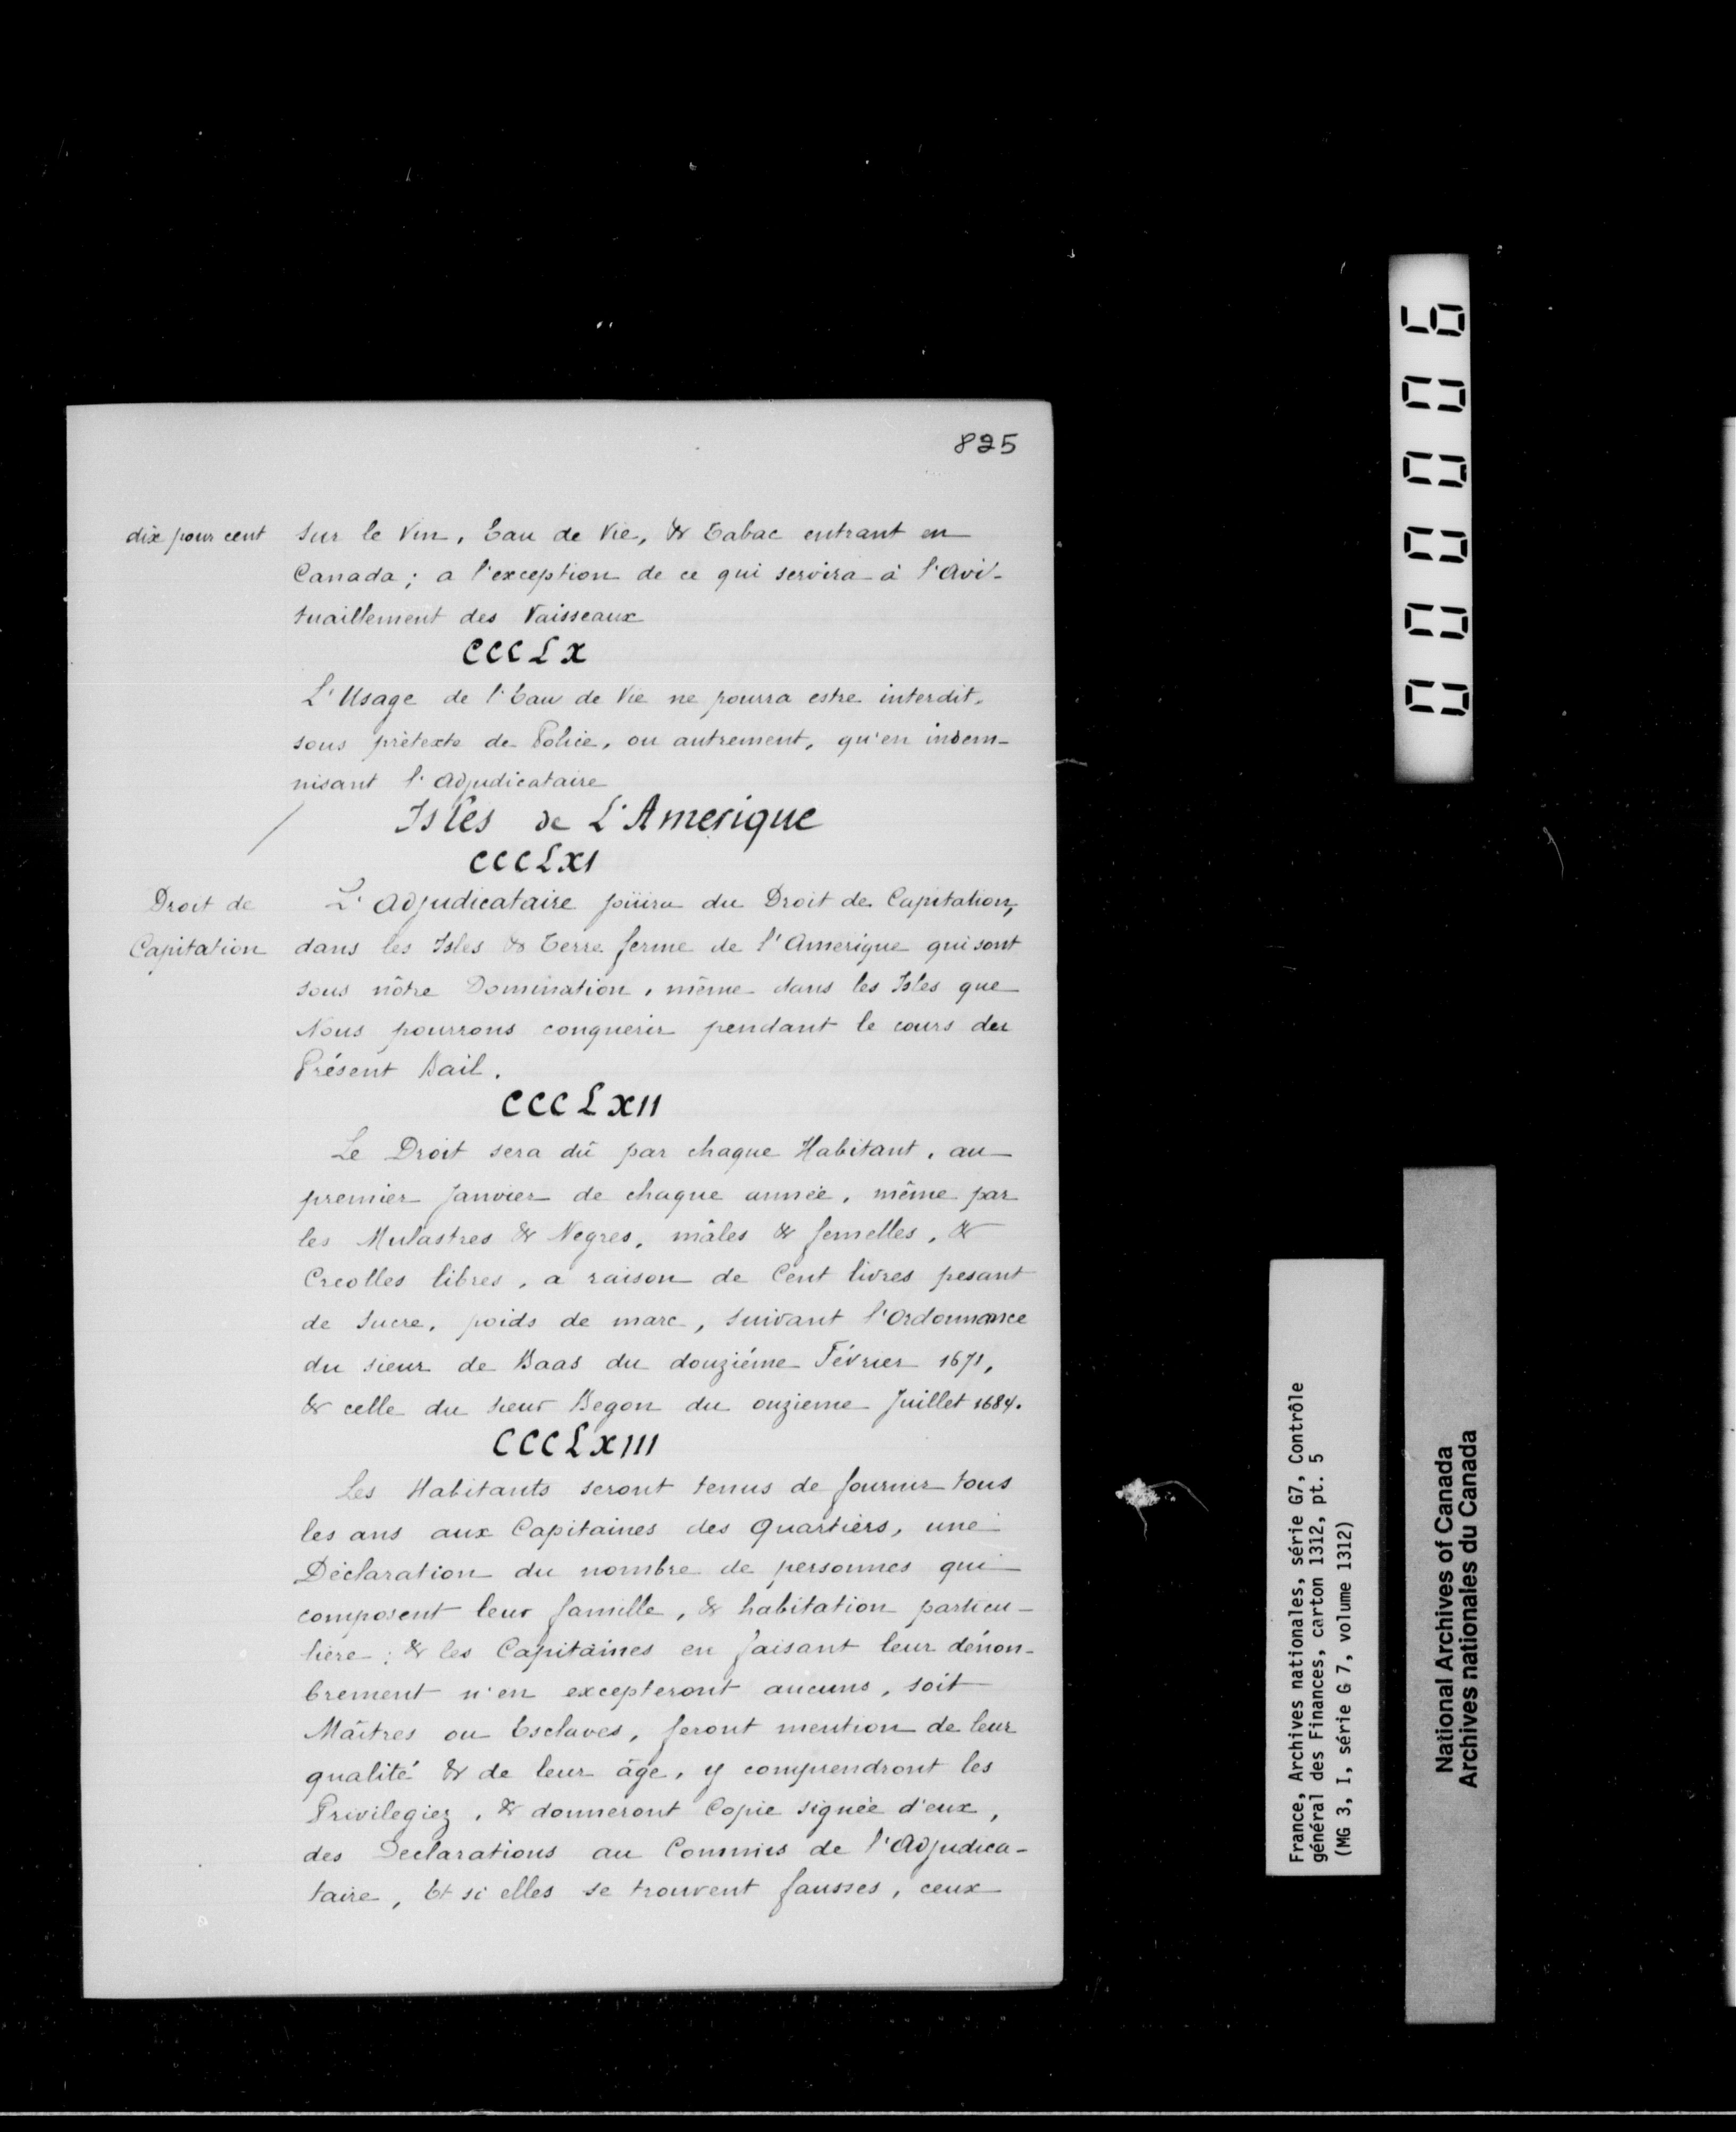 825
dix pour cent sur le Vin, Eau de Vie, & Tabac entrant en
Canada; a l'exception de ce qui servira à l'Avi-
tuaillement des Vaisseaux
CCCLX
L'Usage de l'Eau de Vie ne pourra estre interdit,
sous prétexte de Police, ou autrement, qu'en indem-
nisant l'Adjudicataire
Isles de L'Amerique
CCCLXI
Droit de Capitation
L'Adjudicataire joüira du Droit de Capitation,
dans les Isles & Terre ferme de l'Amerique qui sont
sous nôtre Domination, même dans les Isles que
Nous pourrons conquerir pendant le cours du
Présent Bail.
CCCLXII
Le Droit sera dû par chaque Habitant, au
premier Janvier de chaque année, même par
les Mulastres & Negres, mâles & femelles, &
Creolles libres, a raison de Cent livres pesant
de Sucre, poids de marc, suivant l'Ordonnance
du sieur de Baas du douziéme Février 1671,
& celle du sieur Begon du onzieme Juillet 1684.
CCCLXIII
Les Habitants seront tenus de fournir tous
les ans aux Capitaines des Quartiers, une
Déclaration du nombre de personnes qui
composent leur famille, & habitation particu-
liere; & les Capitaines en faisant leur dénon-
brement n'en excepteront aucuns, soit
Maîtres ou Esclaves, feront mention de leur
qualité & de leur âge, y comprendront les
Privilegiez, & donneront Copie signée d'eux,
des Declarations au Commis de l'Adjudica-
taire, Et si elles se trouvent fausses, ceux
000006
France, Archives nationales, série G7, Contrôle
général des Finances, carton 1312, pt. 5
(MG 3, I, série G 7, volume 1312)
National Archives of Canada
Archives nationales du Canada